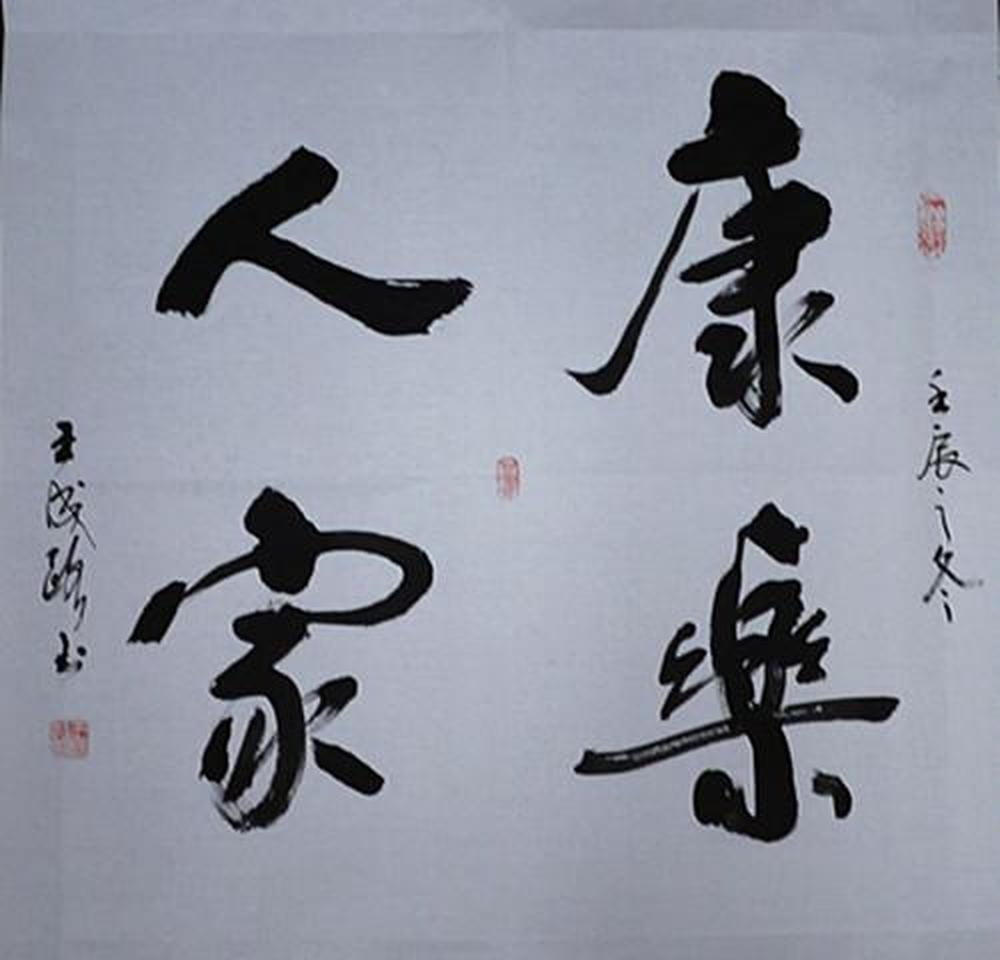 壬辰之冬
康樂
人家
王成路书